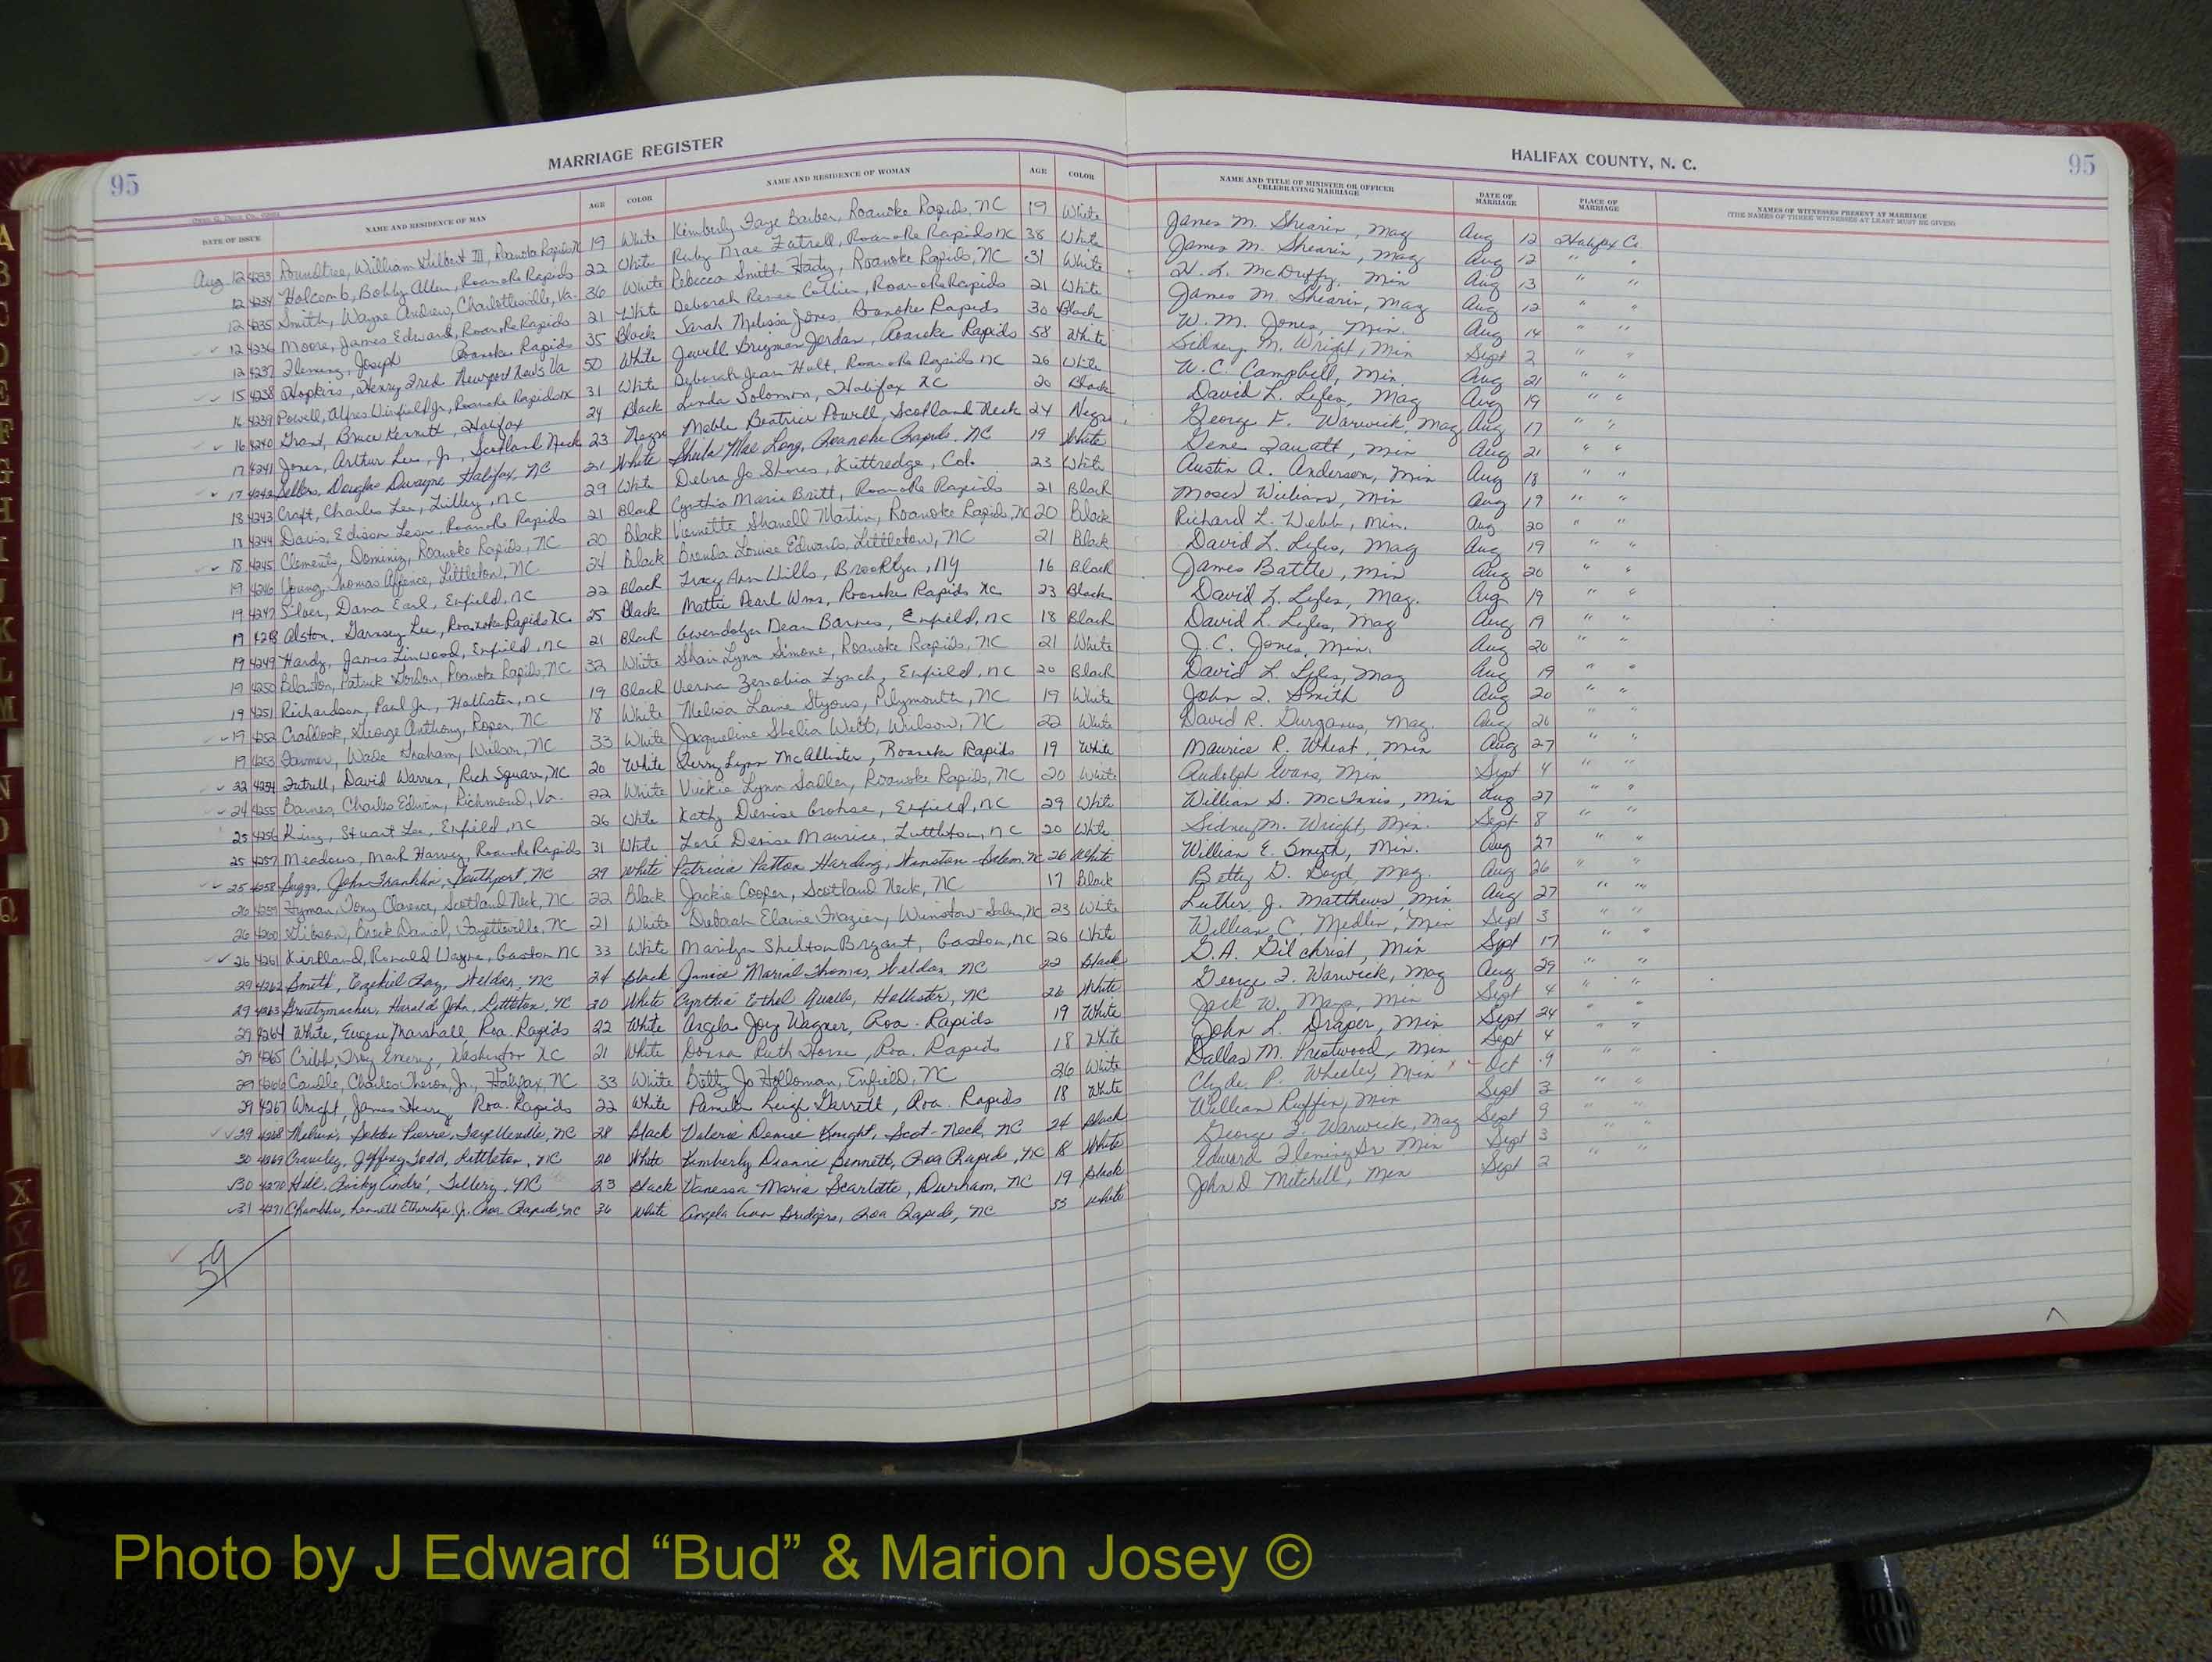 MARRIAGE REGISTER
HALIFAX COUNTY, N. C.
95
95
DATE OF ISSUE NAME AND RESIDENCE OF MAN AGE COLOR NAME AND RESIDENCE OF WOMAN AGE COLOR NAME AND TITLE OF MINISTER OR OFFICER CELEBRATING MARRIAGE DATE OF MARRIAGE PLACE OF MARRIAGE NAMES OF WITNESSES PRESENT AT MARRIAGE
(THE NAMES OF THREE WITNESSES AT LEAST MUST BE GIVEN)
Aug 12 4233 Roundtree, William Gilbert III, Roanoke Rapids NC 19 White Kimberly Faye Barber, Roanoke Rapids, NC 19 White James M. Shearin, Mag Aug 12 Halifax Co.
12 4234 Holcomb, Bobby Allen, Roanoke Rapids 22 White Ruby Mae Futrell, Roanoke Rapids NC 38 White James M. Shearin, Mag Aug 12 " "
12 4235 Smith, Wayne Andrew, Charlottesville, Va. 36 White Rebecca Smith Hardy, Roanoke Rapids, NC 31 White H. L. McDuffy, Min Aug 13 " "
12 4236 Moore, James Edward, Roanoke Rapids 21 White Deborah Renee Collier, Roanoke Rapids 21 White James M. Shearin, Mag Aug 12 " "
12 4237 Fleming, Joseph Roanoke Rapids 35 Black Sarah Melissa Jones, Roanoke Rapids 30 Black W. M. Jones, Min. Aug 14 " "
15 4238 Hopkins, Henry Fred Newport News Va 50 White Jewell Jordan, Roanoke Rapids 58 White Sidney M. Wright, Min Sept 2 " "
16 4239 Powell, Alfred Winfield Jr., Roanoke Rapids NC 31 White Deborah Jean Hult, Roanoke Rapids NC 26 White W. C. Campbell, Min. Aug 21 " "
16 4240 Grant, Bruce Kennett, Halifax 24 Black Linda Solomon, Halifax NC 20 Black David L. Lyles, Mag Aug 19 " "
17 4241 Jones, Arthur Lee, Jr., Scotland Neck 23 Negro Mable Beatrice Powell, Scotland Neck 24 Negro George F. Warwick, Mag Aug 17 " "
17 4242 Sellers, Douglas Dwayne Halifax, NC 21 White Sheila Mae Long, Roanoke Rapids, NC 19 White Gene Min Aug 21 " "
18 4243 Craft, Charles Lee, Tillery, NC 29 White Debra Jo Shores, Kittredge, Col. 23 White Austin A. Anderson, Min Aug 18 " "
18 4244 Davis, Edison Leon, Roanoke Rapids 21 Black Cynthia Marie Britt, Roanoke Rapids 21 Black Moses Williams, Min Aug 19 " "
18 4245 Clements, Roanoke Rapids, NC 20 Black Vernette Shanell Martin, Roanoke Rapids, NC 20 Black Richard L. Webb, Min. Aug 20 " "
19 4246 Young, Thomas Littleton, NC 24 Black Brenda Louise Edwards, Littleton, NC 21 Black David L. Lyles, Mag Aug 19 " "
19 4247 Silver, Dana Earl, Enfield, NC 22 Black Tracy Ann Wills, Brooklyn, NY 16 Black James Battle, Min Aug 20 " "
19 4248 Alston, Garnsey Lee, Roanoke Rapids NC 25 Black Mattie Pearl Wms, Roanoke Rapids NC 23 Black David L. Lyles, Mag. Aug 19 " "
19 4249 Hardy, James Linwood, Enfield, NC 21 Black Gwendolyn Dean Barnes, Enfield, NC 18 Black David L. Lyles, Mag Aug 19 " "
19 4250 Blanton, Patrick Gordon, Roanoke Rapids, NC 32 White Shari Lynn Simone, Roanoke Rapids, NC 21 White J. C. Jones, Min. Aug 20 " "
19 4251 Richardson, Paul Jr., Hollister, NC 19 Black Verna Zenobia Lynch, Enfield, NC 20 Black David L. Lyles, Mag Aug 19 " "
19 4252 Craddock, George Anthony, Roper, NC 18 White Melisa Laine Styons, Plymouth, NC 19 White John I. Smith Aug 20 " "
19 4253 Farmer, Wade Graham, Wilson, NC 33 White Jacqueline Shelia Webb, Wilson, NC 22 White David R. Gurganus, Mag. Aug 20 " "
22 4254 Futrell, David Warren, Rich Square, NC 20 White Gerry Lynn McAllister, Roanoke Rapids 19 White Maurice R. Wheat, Min Aug 27 " "
24 4255 Barnes, Charles Edwin, Richmond, Va. 22 White Vickie Lynn Sadler, Roanoke Rapids, NC 20 White Rudolph Evans, Min Sept 4 " "
25 4256 King, Stuart Lee, Enfield, NC 26 White Kathy Denise Crohse, Enfield, NC 29 White William S. McInnis, Min Aug 27 " "
25 4257 Meadows, Mark Harvey, Roanoke Rapids 31 White Lori Denise Maurice, Littleton, NC 20 White Sidney M. Wright, Min. Sept 8 " "
25 4258 Suggs, John Franklin, Southport, NC 29 White Patricia Patton Harding, Winston-Salem, NC 26 White William E. Smyth, Min. Aug 27 " "
26 4259 Hyman, Tony Clarence, Scotland Neck, NC 22 Black Jackie Cooper, Scotland Neck, NC 17 Black Betty G. Boyd, Mag. Aug 26 " "
26 4260 Gibson, Brock Daniel, Fayetteville, NC 21 White Deborah Elaine Frazier, Winston-Salem, NC 23 White Luther J. Matthews, Min Aug 27 " "
26 4261 Kirkland, Ronald Wayne, Gaston NC 33 White Marilyn Shelton Bryant, Gaston, NC 26 White William C. Medlin, Min Sept 3 " "
29 4262 Smith, Ezekiel Ray, Weldon, NC 24 Black Janice Marial Thomas, Weldon, NC 22 Black G. A. Gilchrist, Min Sept 17 " "
29 4263 Gruetzmacher, Harald John, Littleton, NC 20 White Cynthia Ethel Qualls, Hollister, NC 26 White George F. Warwick, Mag Aug 29 " "
29 4264 White, Eugene Marshall Roa. Rapids 22 White Angela Joy Wagner, Roa. Rapids 19 White Jack W. Mays, Min Sept 4 " "
29 4265 Cribb, Troy Emery, Washington NC 21 White Donna Ruth Horne, Roa. Rapids 18 White John L. Draper, Min Sept 24 " "
29 4266 Caudle, Charles Theron, Jr., Halifax, NC 33 White Betty Jo Holloman, Enfield, NC 26 White Dallas M. Prestwood, Min Sept 4 " "
29 4267 Wright, James Henry Roa. Rapids 22 White Pamela Leigh Garrett, Roa. Rapids 18 White Clyde P. Wheeley, Min x Oct 9 " "
29 4268 Melvin, Pierre, Fayetteville, NC 28 Black Valerie Denise Knight, Scot-Neck, NC 24 Black William Ruffin, Min Sept 3 " "
30 4269 Crawley, Jeffrey Todd, Littleton, NC 20 White Kimberly Dianne Bennett, Roa Rapids, NC 18 White George F. Warwick, Mag Sept 9 " "
30 4270 Hill, Ricky André, Tillery, NC 23 Black Vanessa Maria Scarlotte, Durham, NC 19 Black Edward Fleming Sr Min Sept 3 " "
31 4271 Chambliss, Kennett Etheridge, Jr. Roa. Rapids, NC 36 White Angela Ann Bridgers, Roa Rapids, NC 33 White John D Mitchell, Min Sept 2 " "
59
A
B
C
D
E
F
G
H
I
K
L
M
N
O
Q
X
Y
Z
Photo by J Edward “Bud” & Marion Josey ©